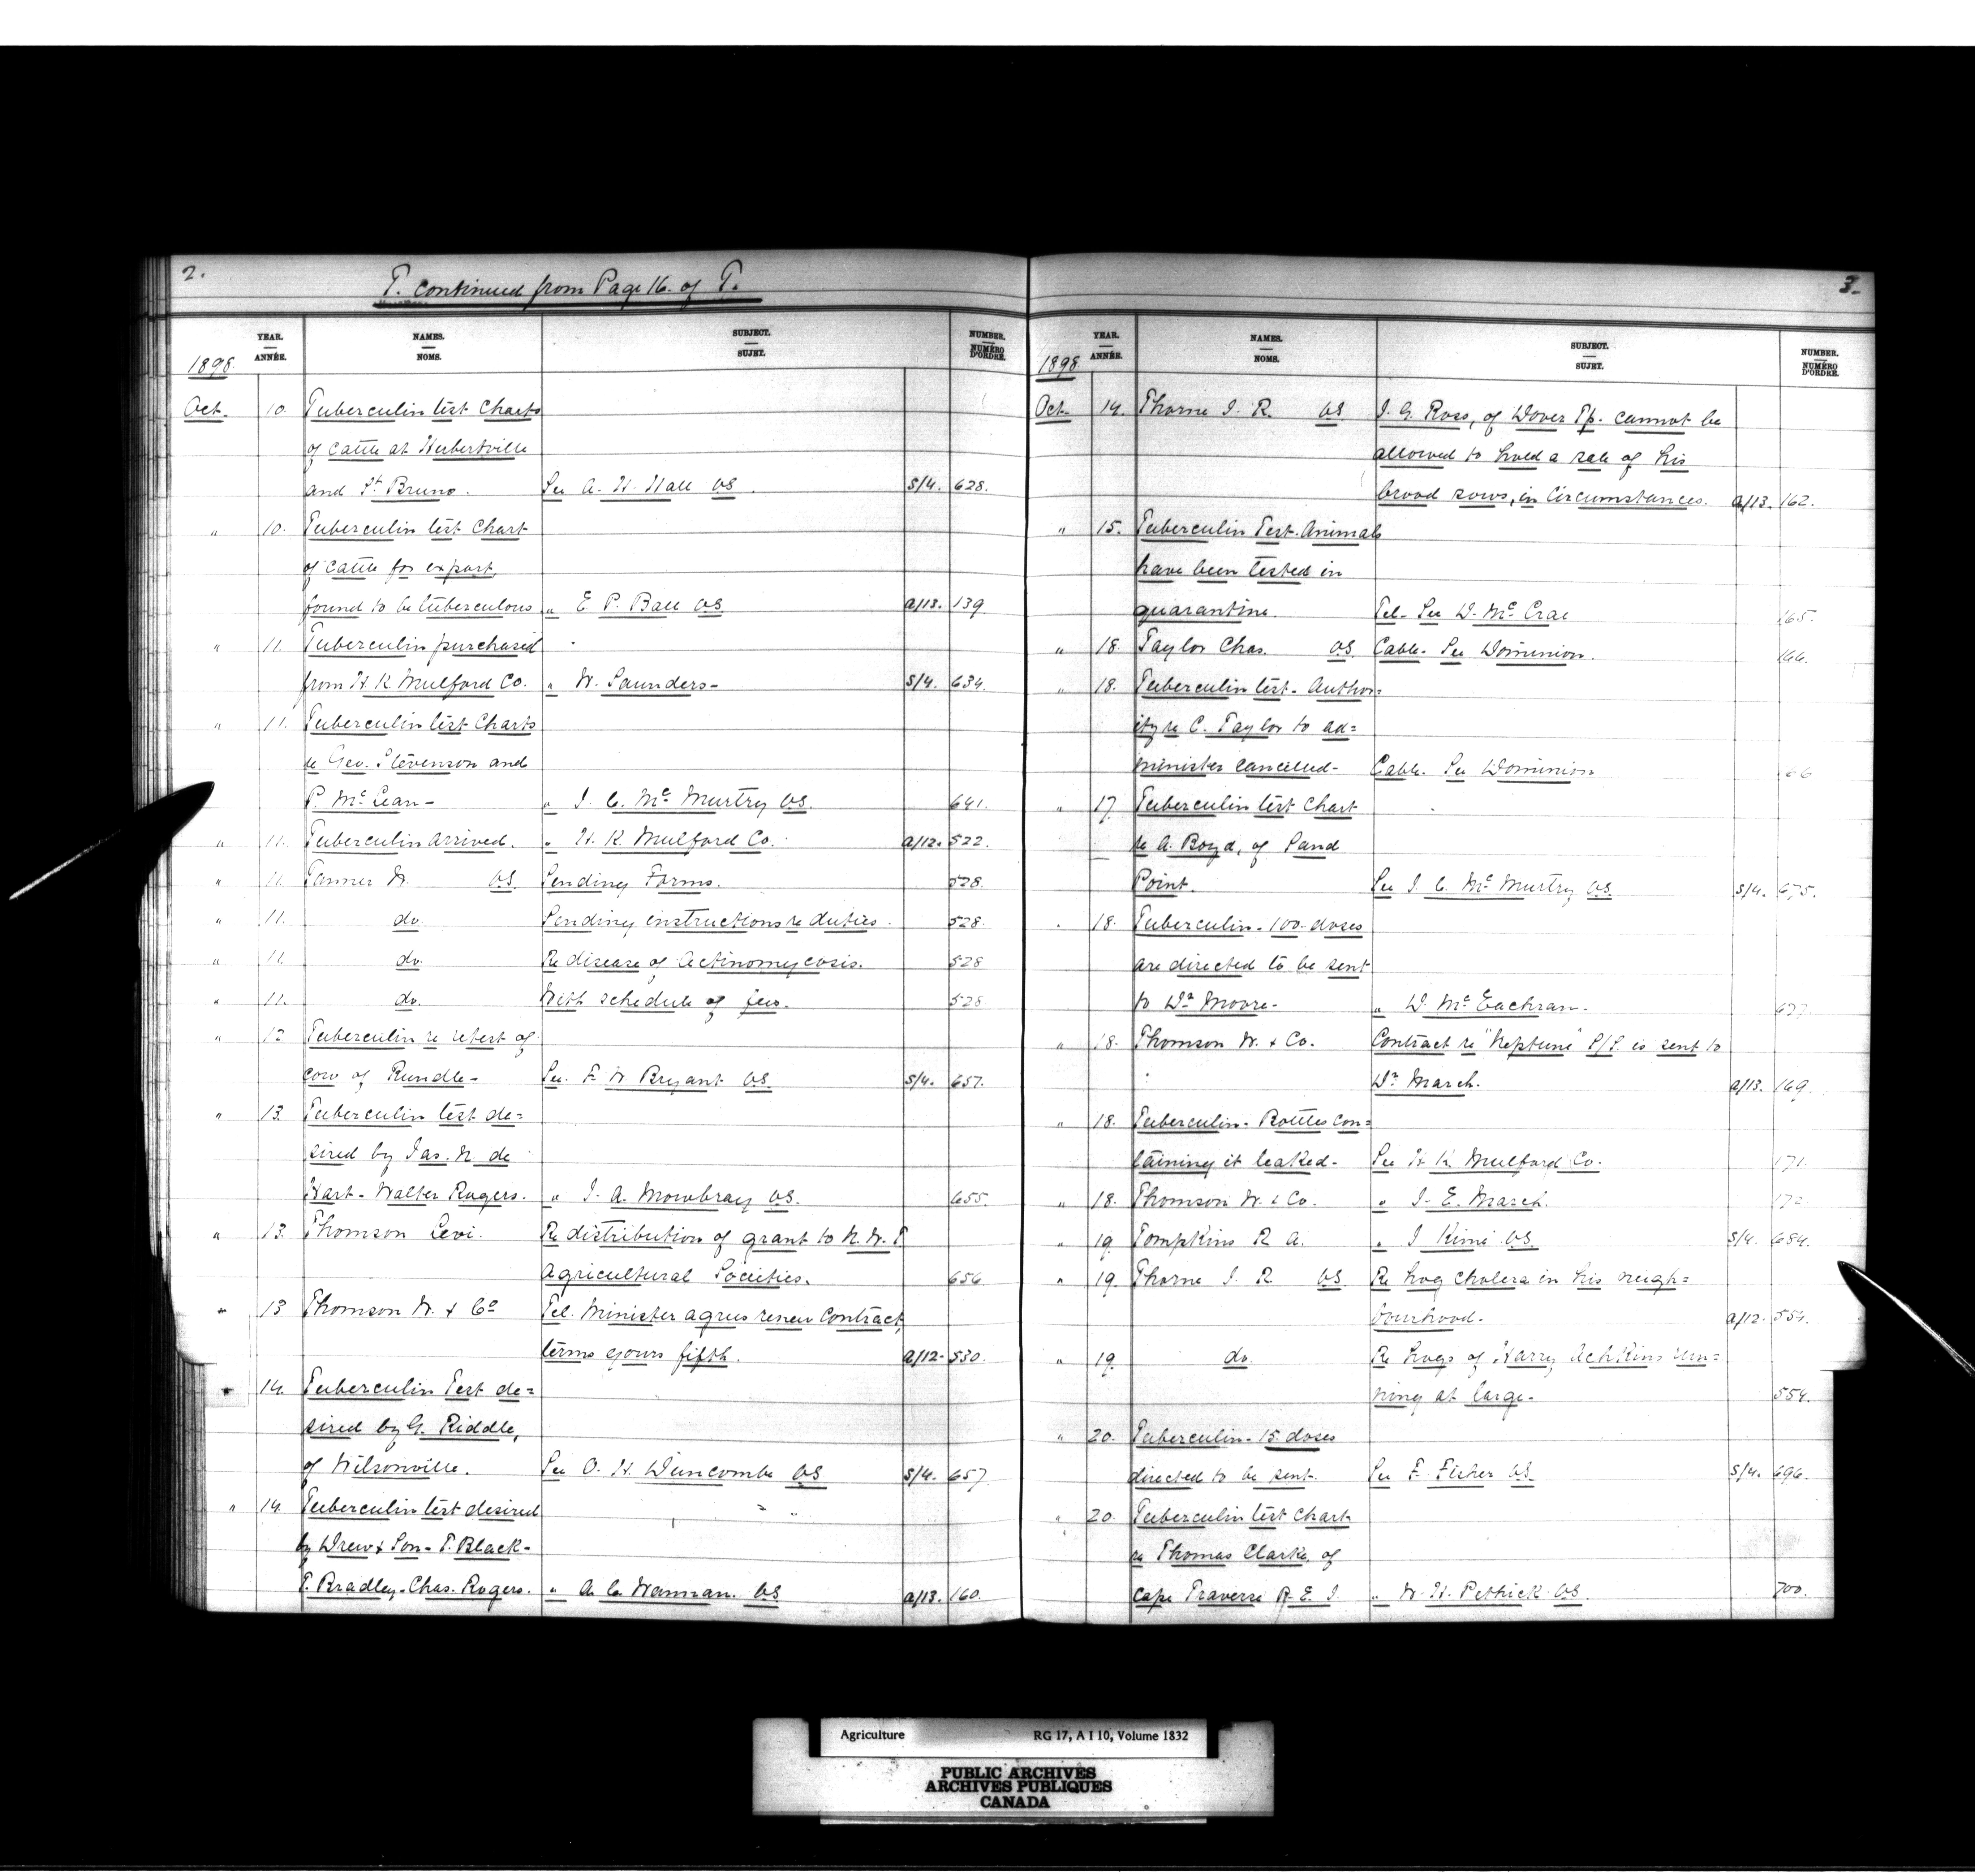 2.
T. continued from Page 16. of T.
YEAR. NAMES. SUBJECT. NUMBER.
ANNÉE. NOMS. SUJET. NUMÉRO D'ORDRE.
1898.
Oct. 10. Tuberculin test Charts
of cattle at Hubertville
and St Bruno. See A. H. Hall VS. S/4. 628.
" 10. Tuberculin test Chart
of cattle for export,
found to be tuberculous " E. P. Ball VS a/13. 139
" 11. Tuberculin purchased
from H. K. Mulford Co. " W. Saunders- S/4. 634.
" 11. Tuberculin test Charts
re Geo. Stevenson and
P. McLean- " J. C. McMurtry VS. 641.
" 11. Tuberculin arrived. " H. K. Mulford Co. a/12. 522.
" 11. Tanner W. VS. Sending Forms. 528.
" 11. do. Sending instructions re duties. 528.
" 11. do. Re disease of Actinomycosis. 528
" 11. do. With schedule of fees. 528
" 12 Tuberculin re retest of
cow of Rundle- See F. W Bryant VS. S/4. 657.
" 13. Tuberculin test de=
sired by Jas. N de
Hart- Walter Rogers. " J. A. Mowbray VS. 655.
" 13. Thomson Levi. Re distribution of grant to N. W. T.
Agricultural Societies. 656
" 13 Thomson W. & Co Tel. Minister agrees renew Contract,
terms yours fifth. a/12- 530.
" 14. Tuberculin Test de=
sired by G. Riddle,
of Wilsonville. See O. H. Duncombe VS S/4. 657
" 14. Tuberculin test desired
by Drew & Son- T. Black-
T. Bradley- Chas. Rogers. " A. C. Wanman. VS a/13. 160.
3.
YEAR. NAMES. SUBJECT. NUMBER.
ANNÉE. NOMS. SUJET. NUMÉRO D'ORDRE.
1898.
Oct. 14. Thorne J. R. VS J. G. Ross, of Dover Tp. cannot be
allowed to hold a sale of his
brood sows, in Circumstances. a/13. 162.
" 15. Tuberculin Test. Animals
have been tested in
quarantine. Tel- See D. McCrae 165.
" 18. Taylor Chas. VS. Cable- See Dominion. 166.
" 18. Tuberculin test- Author=
ity re C. Taylor to ad=
minister cancelled- Cable. See Dominion 166
" 17 Tuberculin test Chart
re A. Boyd, of Sand
Point. See J. C. McMurtry VS. S/4. 675.
" 18. Tuberculin- 100 doses
are directed to be sent
to Dr Moore- " D. McEachran. 677
" 18. Thomson W. & Co. Contract re "Neptune" S/S. is sent to
Dr March. a/13. 169.
" 18. Tuberculin- Bottles con=
taining it leaked- See H K. Mulford Co. 171.
" 18. Thomson W. & Co. " J- E. March. 172
" 19. Tompkins R A. " J Kime VS. S/4. 684.
" 19. Thorne J. R VS. Re hog cholera in his neigh=
bourhood. a/12- 554.
" 19. do. Re hogs of Harry Achkins run=
ning at large- 554.
" 20. Tuberculin- 15 doses
directed to be sent. See F. Fisher VS S/4. 696.
" 20. Tuberculin test Chart
re Thomas Clarke, of
Cape Traverse P. E. I. " W. H. Pethick VS. 700.
Agriculture RG 17, A I 10, Volume 1832
PUBLIC ARCHIVES
ARCHIVES PUBLIQUES
CANADA